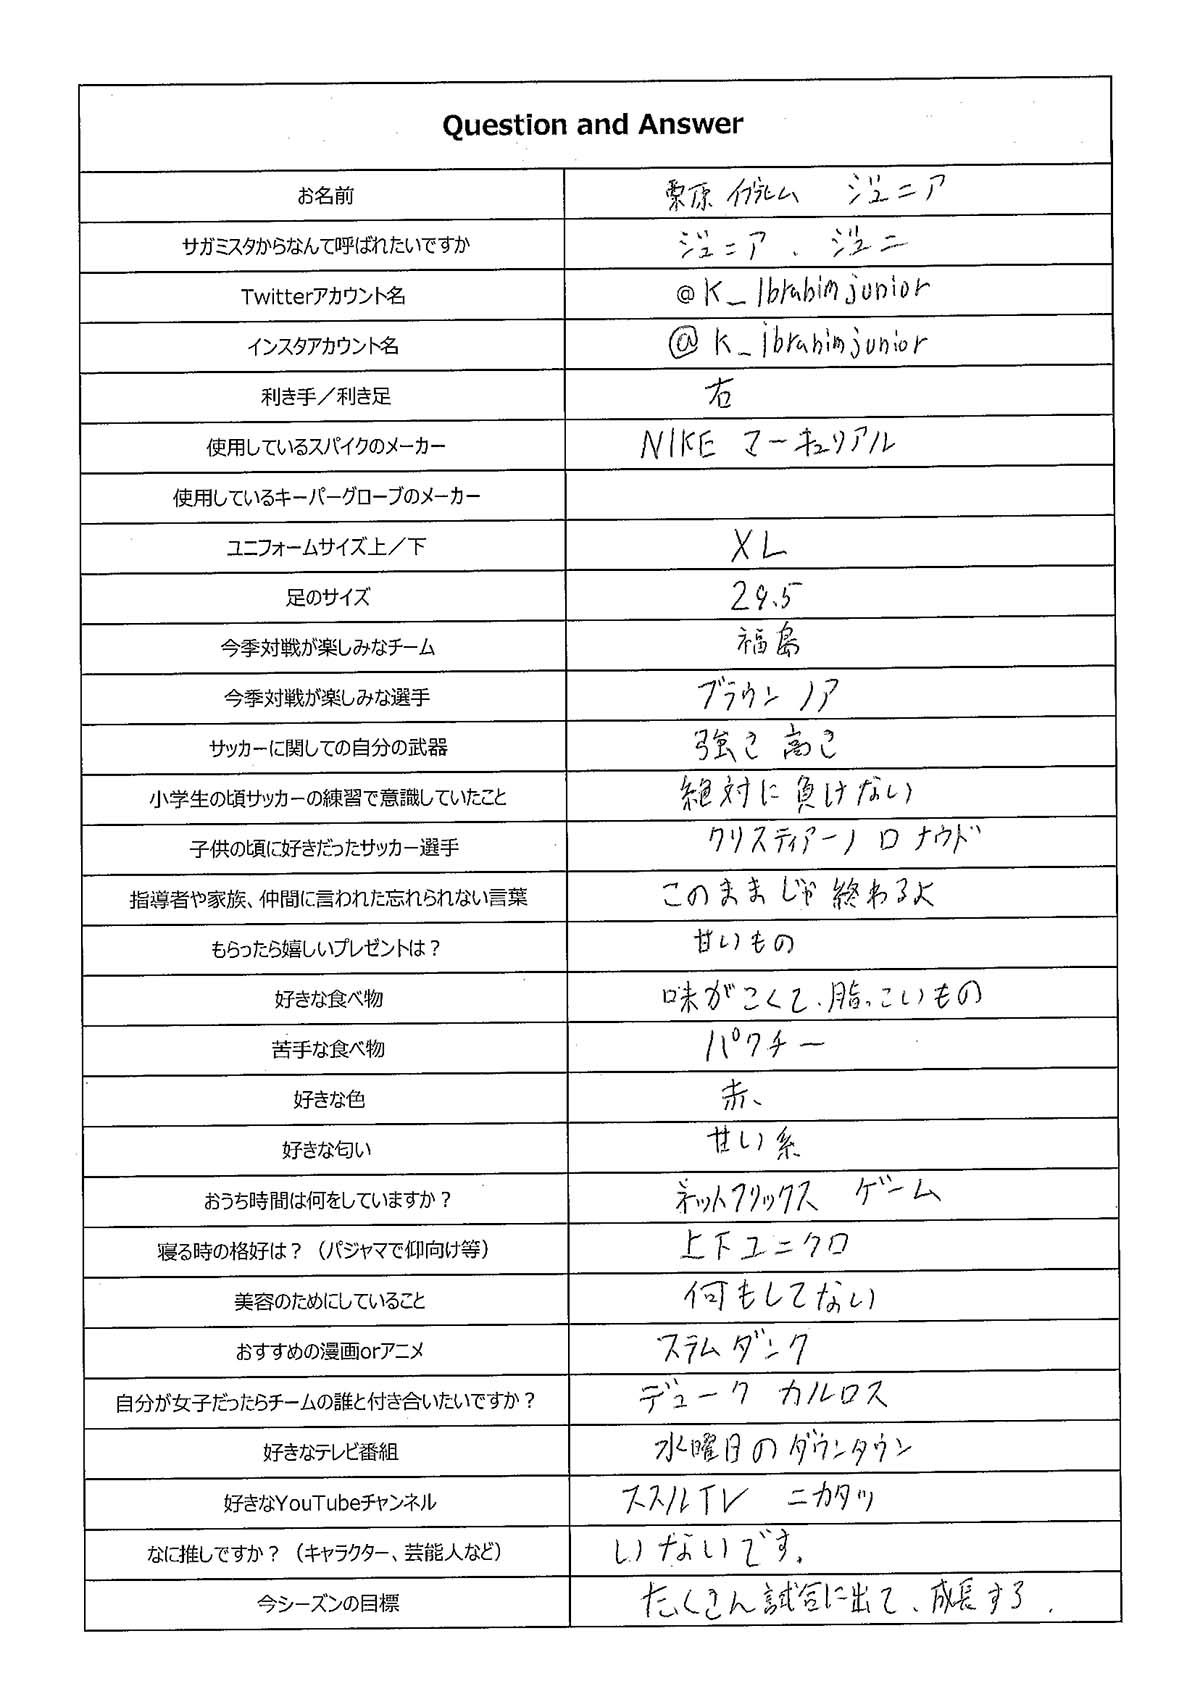 Question and Answer
お名前 栗原 イブラヒム ジュニア
サガミスタからなんて呼ばれたいですか ジュニア、ジュニ
Twitterアカウント名 @K_Ibrahimjunior
インスタアカウント名 @K_ibrahimjunior
利き手／利き足 右
使用しているスパイクのメーカー NIKE マーキュリアル
使用しているキーパーグローブのメーカー
ユニフォームサイズ上／下 XL
足のサイズ 29.5
今季対戦が楽しみなチーム 福島
今季対戦が楽しみな選手 ブラウン ノア
サッカーに関しての自分の武器 強さ 高さ
小学生の頃サッカーの練習で意識していたこと 絶対に負けない
子供の頃に好きだったサッカー選手 クリスティアーノ ロナウド
指導者や家族、仲間に言われた忘れられない言葉 このままじゃ終わるよ
もらったら嬉しいプレゼントは？ 甘いもの
好きな食べ物 味がこくて、脂っこいもの
苦手な食べ物 パクチー
好きな色 赤、
好きな匂い 甘い系
おうち時間は何をしていますか？ ネットフリックス ゲーム
寝る時の格好は？（パジャマで仰向け等） 上下ユニクロ
美容のためにしていること 何もしてない
おすすめの漫画orアニメ スラムダンク
自分が女子だったらチームの誰と付き合いたいですか？ デューク カルロス
好きなテレビ番組 水曜日のダウンタウン
好きなYouTubeチャンネル ススルTV ニカタツ
なに推しですか？（キャラクター、芸能人など） いないです。
今シーズンの目標 たくさん試合に出て、成長する.